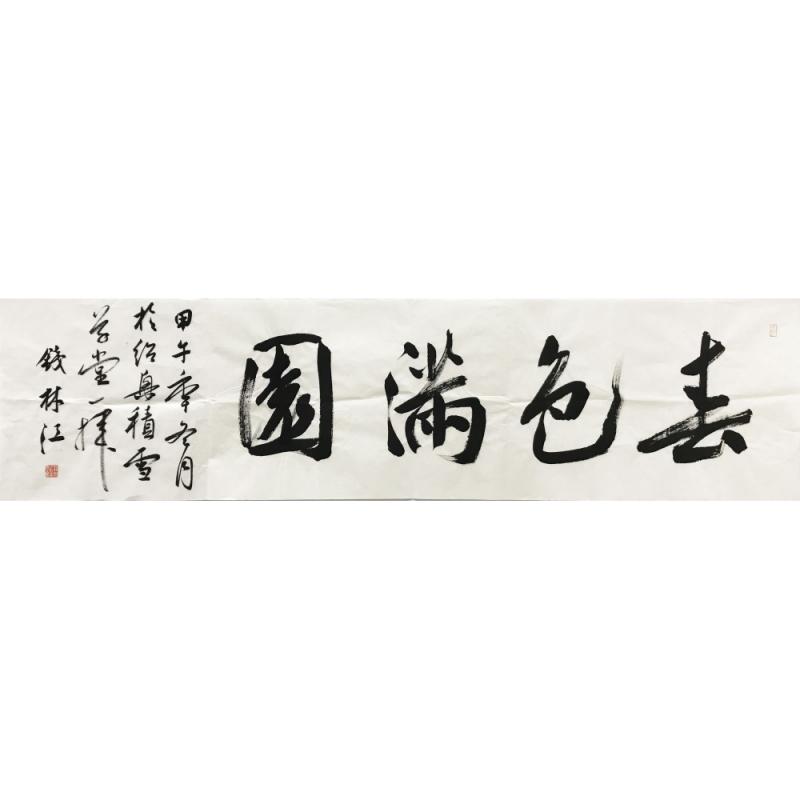 春色滿園
甲午季冬月
於紹興積雪
草堂一揮
錢林江